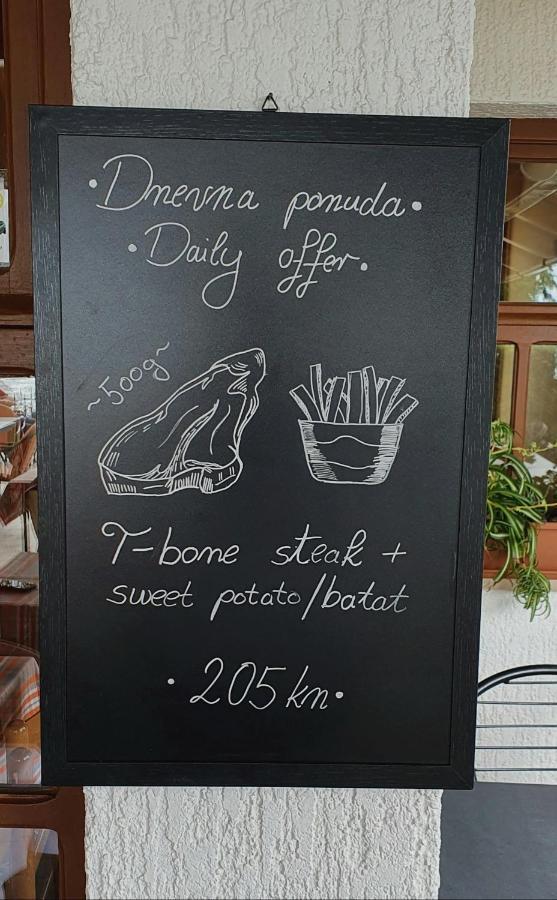 ·Dnevna ponuda·
·Daily offer·
~500g~
T-bone steak +
sweet potato/batat
·205kn·